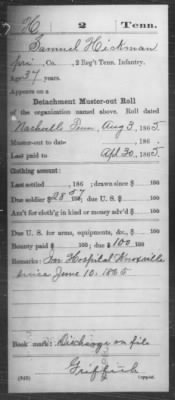 H 2 Tenn.
Samuel Hickman
pri, Co. , 2 Reg't Tenn. Infantry.
Age 37 years.
Appears on a
Detachment Muster-out Roll
of the organization named above. Roll dated
Nashville Tenn, Aug 3, 1865.
Muster-out to date , 186 .
Last paid to Apl 30, 1865.
Clothing account:
Last settled , 186 ; drawn since $ 100
Due soldier $ 100; due U. S. $ 100
Am't for cloth'g in kind or money adv'd $ 100
Due U. S. for arms, equipments, &c., $ 100
Bounty paid $ 100; due $ 100 100
Remarks: In Hospital Knoxville
since June 10, 1865
Book mark: Discharge on file
Griffith
Copyist.